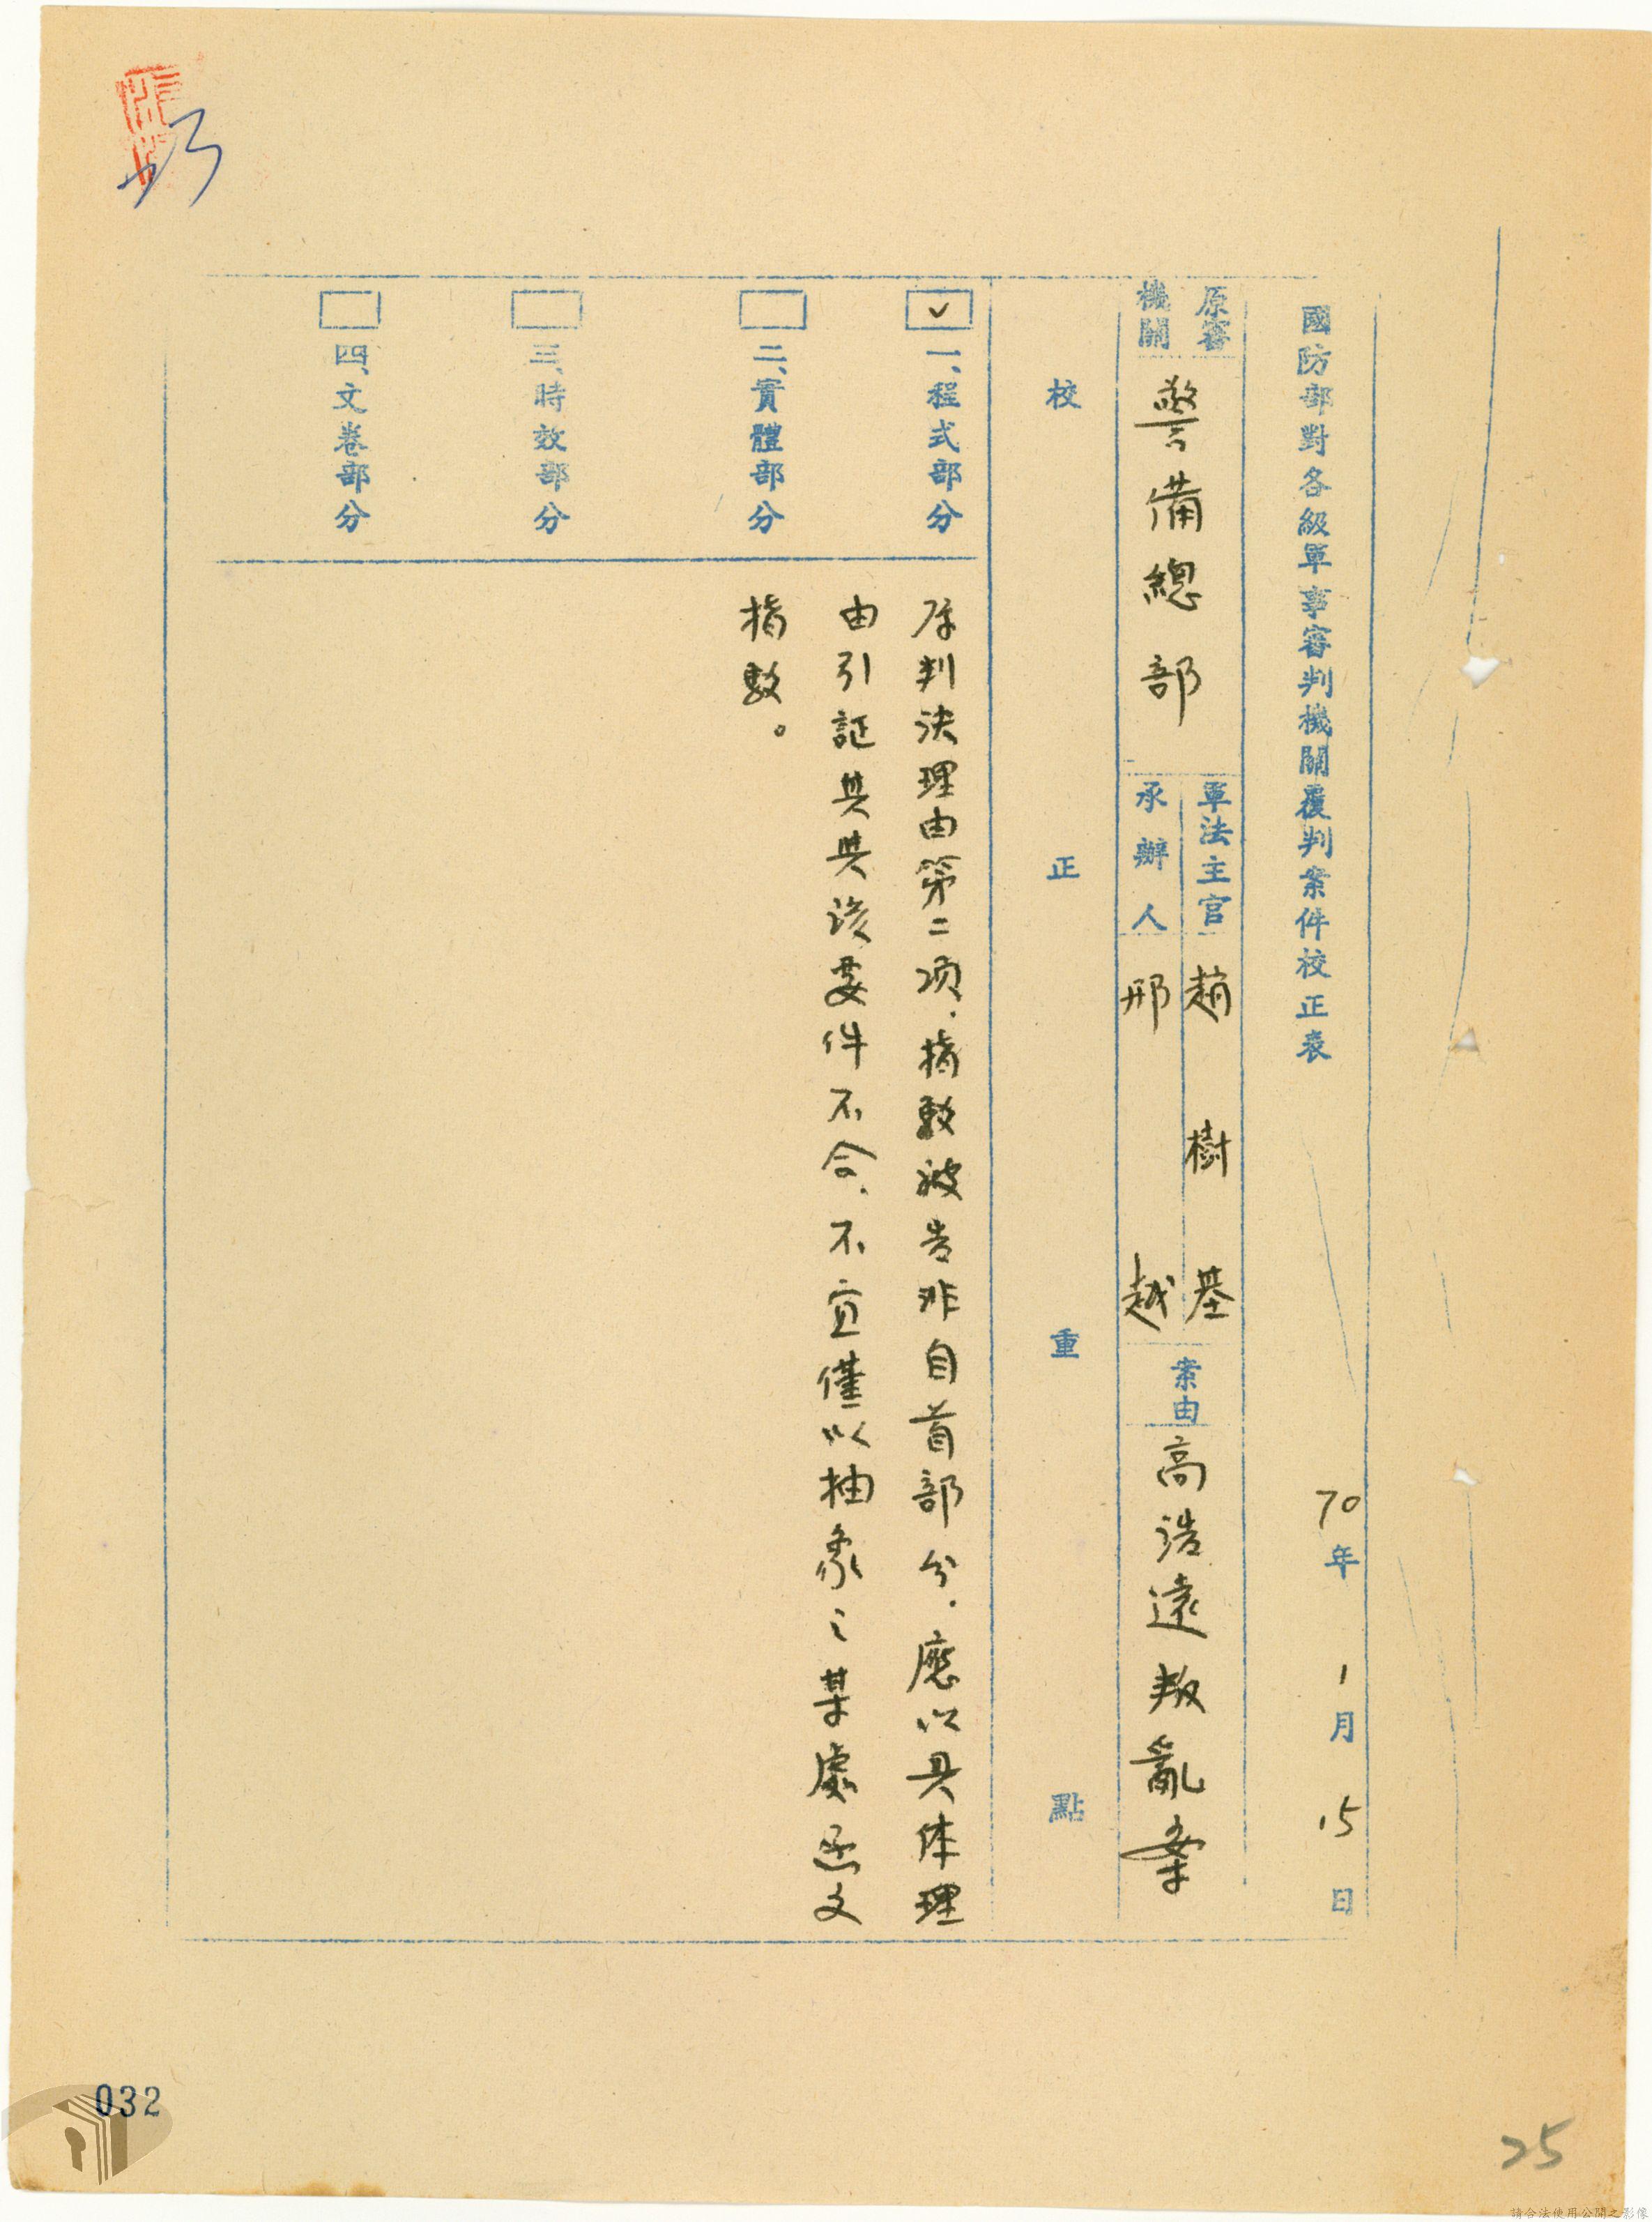 國防部對各級軍事審判機關覆判案件校正表
70年1月15日
原審機關
警備總部
軍法主官
趙樹基
承辦人
邢越
案由
高浩遠叛亂案
校正重點
✓
一、程式部分
原判決理由第二項，指駁被告非自首部分，應以具体理
由引証其與該要件不合，不宜僅以抽象之某處函文
指駁。
二、實體部分
三、時效部分
四、文卷部分
032
25
請合法使用公開之影像